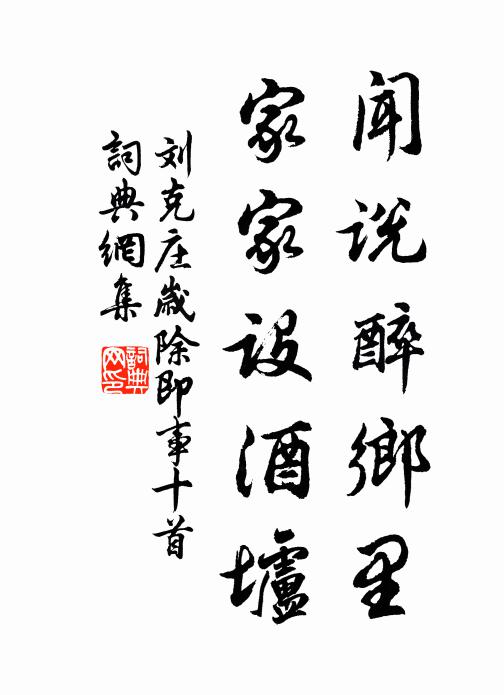 闻说醉鄉里
家家設酒壚
刘克庄歲除即事十首
詞典網集
詞典网印